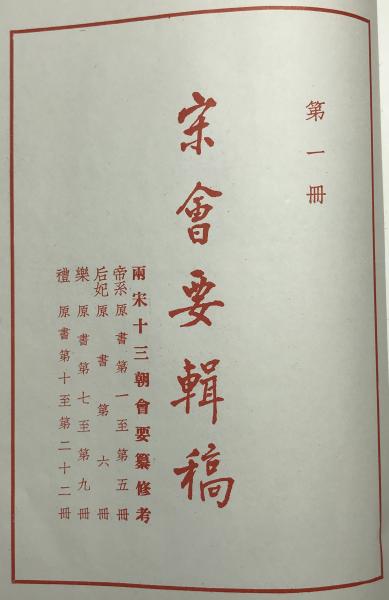 第一冊
宋會要輯稿
兩宋十三朝會要纂修考
帝系 原書第一至第五冊
后妃 原書第六冊
樂 原書第七至第九冊
禮 原書第十至第二十二冊